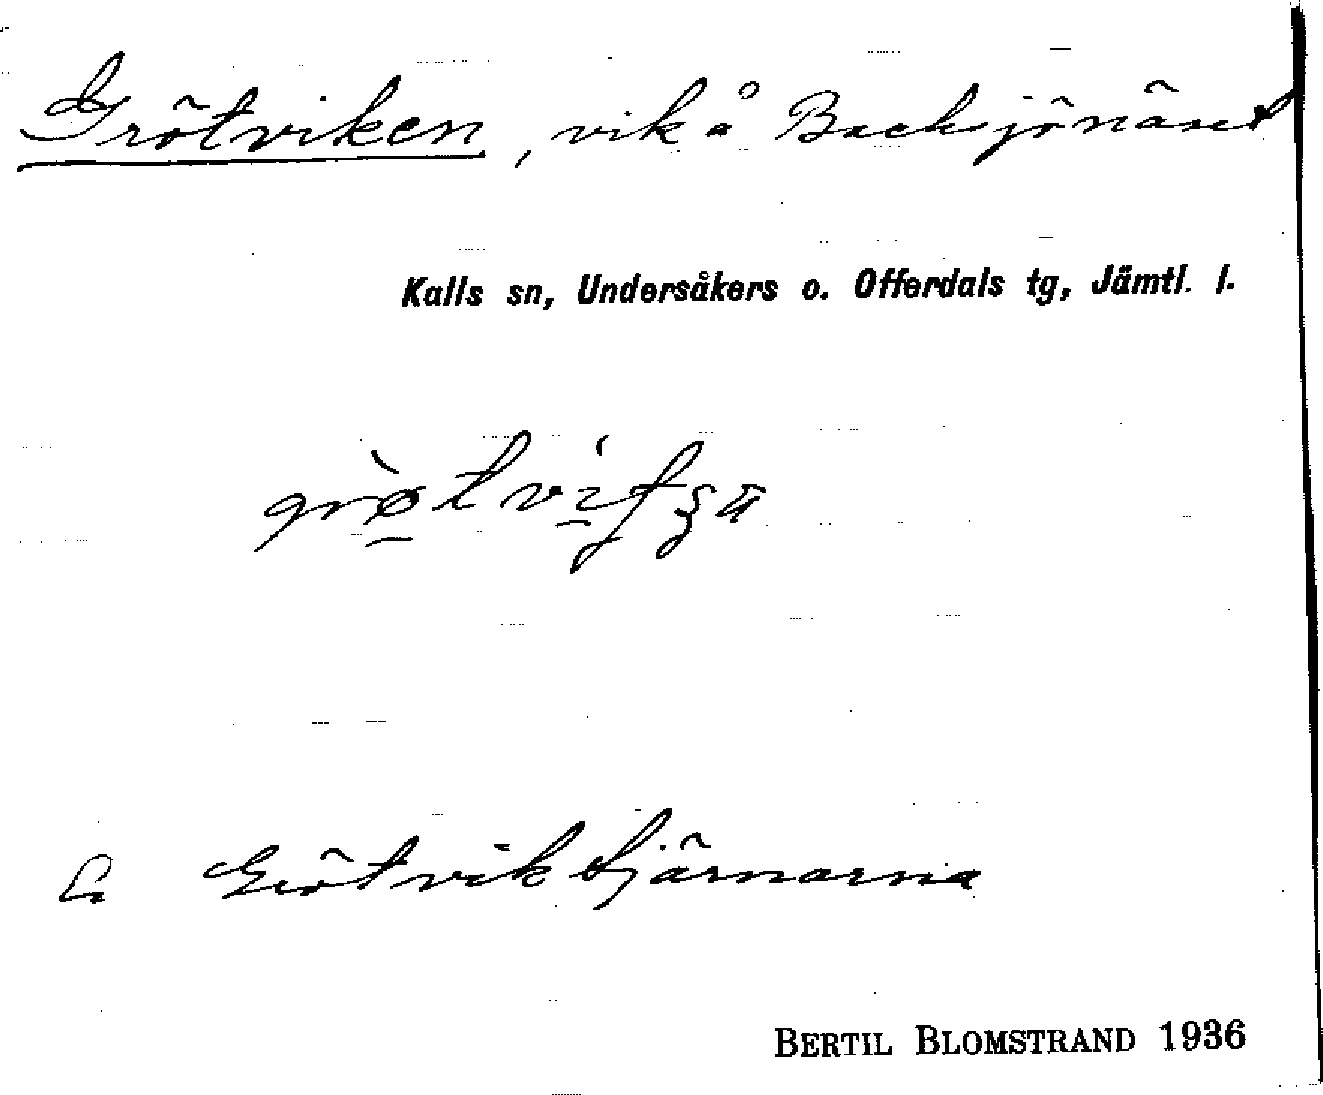 Grötviken, vik å Backsjönäset
Kalls sn, Undersåkers o. Offerdals tg, Jämtl. l.
Grötviktjärnarna
BERTIL BLOMSTRAND 1936